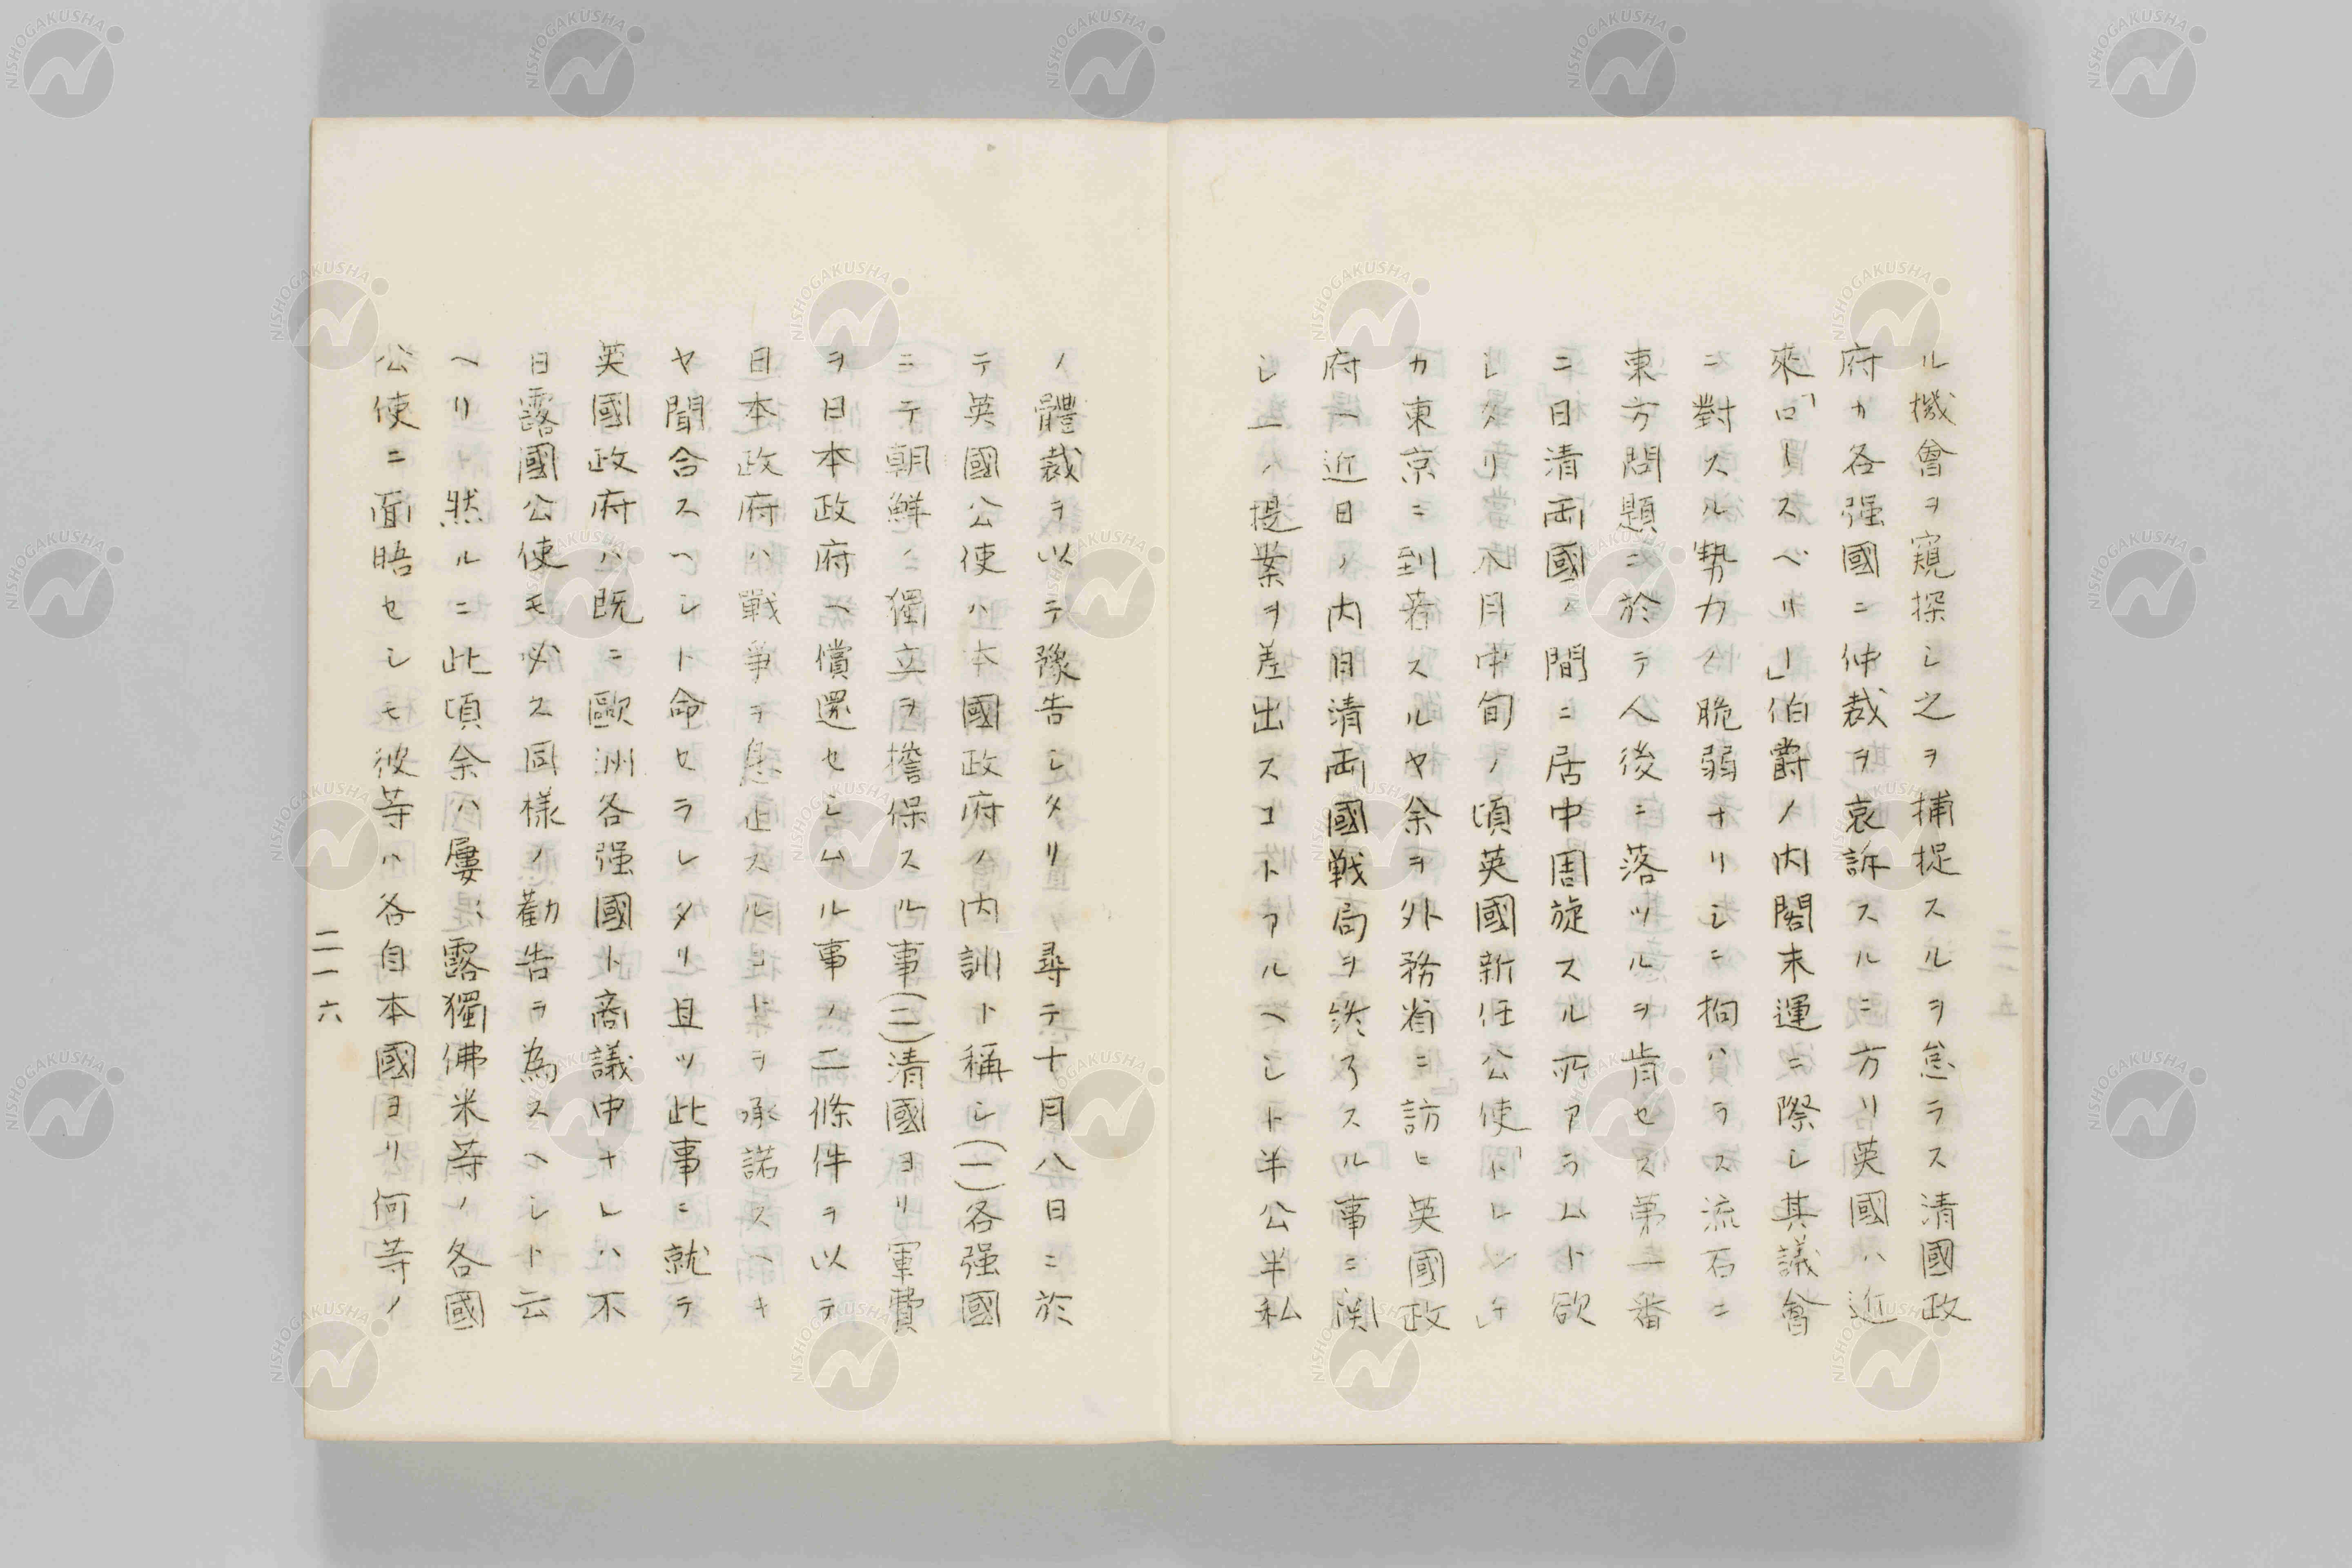 ル機會ヲ窺探シ之ヲ捕捉スルヲ怠ラス清國政
府カ各强國ニ仲裁ヲ哀訴スルニ方リ英國ハ近
來「ローズベリー」伯爵ノ内閣末運ニ際シ其議會
ニ對スル勢力ハ脆弱ナリシニ拘ハラス流石ニ
東方問題ニ於テ人後ニ落ツルヲ肯セス第一番
ニ日清両國ノ間ニ居中周旋スル所アラムト欲
シタリ八月中旬ノ頃英國新任公使「トレンチ」
カ東京ニ到着スルヤ余ヲ外務省ニ訪ヒ英國政
府ハ近日ノ内日清両國戦局ヲ終了スル事ニ関
シ一ノ提案ヲ差出スコトアルヘシト半公半私
ノ體裁ヲ以テ豫告シタリ尋テ十月八日ニ於
テ英國公使ハ本國政府ノ内訓ト稱シ(一)各强國
ニテ朝鮮ノ獨立ヲ擔保スル事(二)清國ヨリ軍費
ヲ日本政府ヘ償還セシムル事ノ二條件ヲ以テ
日本政府ハ戰爭ヲ息止スルコトヲ承諾スヘキ
ヤ聞合スヘシト命セラレタリ且ツ此事ニ就テ
英國政府ハ既ニ歐洲各强國ト商議中ナレハ不
日露國公使モ必ス同樣ノ勸告ヲ為スヘシト云
ヘリ然ルニ此頃余ハ屢〻露獨佛米等ノ各國
公使ニ面晤セシモ彼等ハ各自本國ヨリ何等ノ
二一六
NISHOGAKUSHA